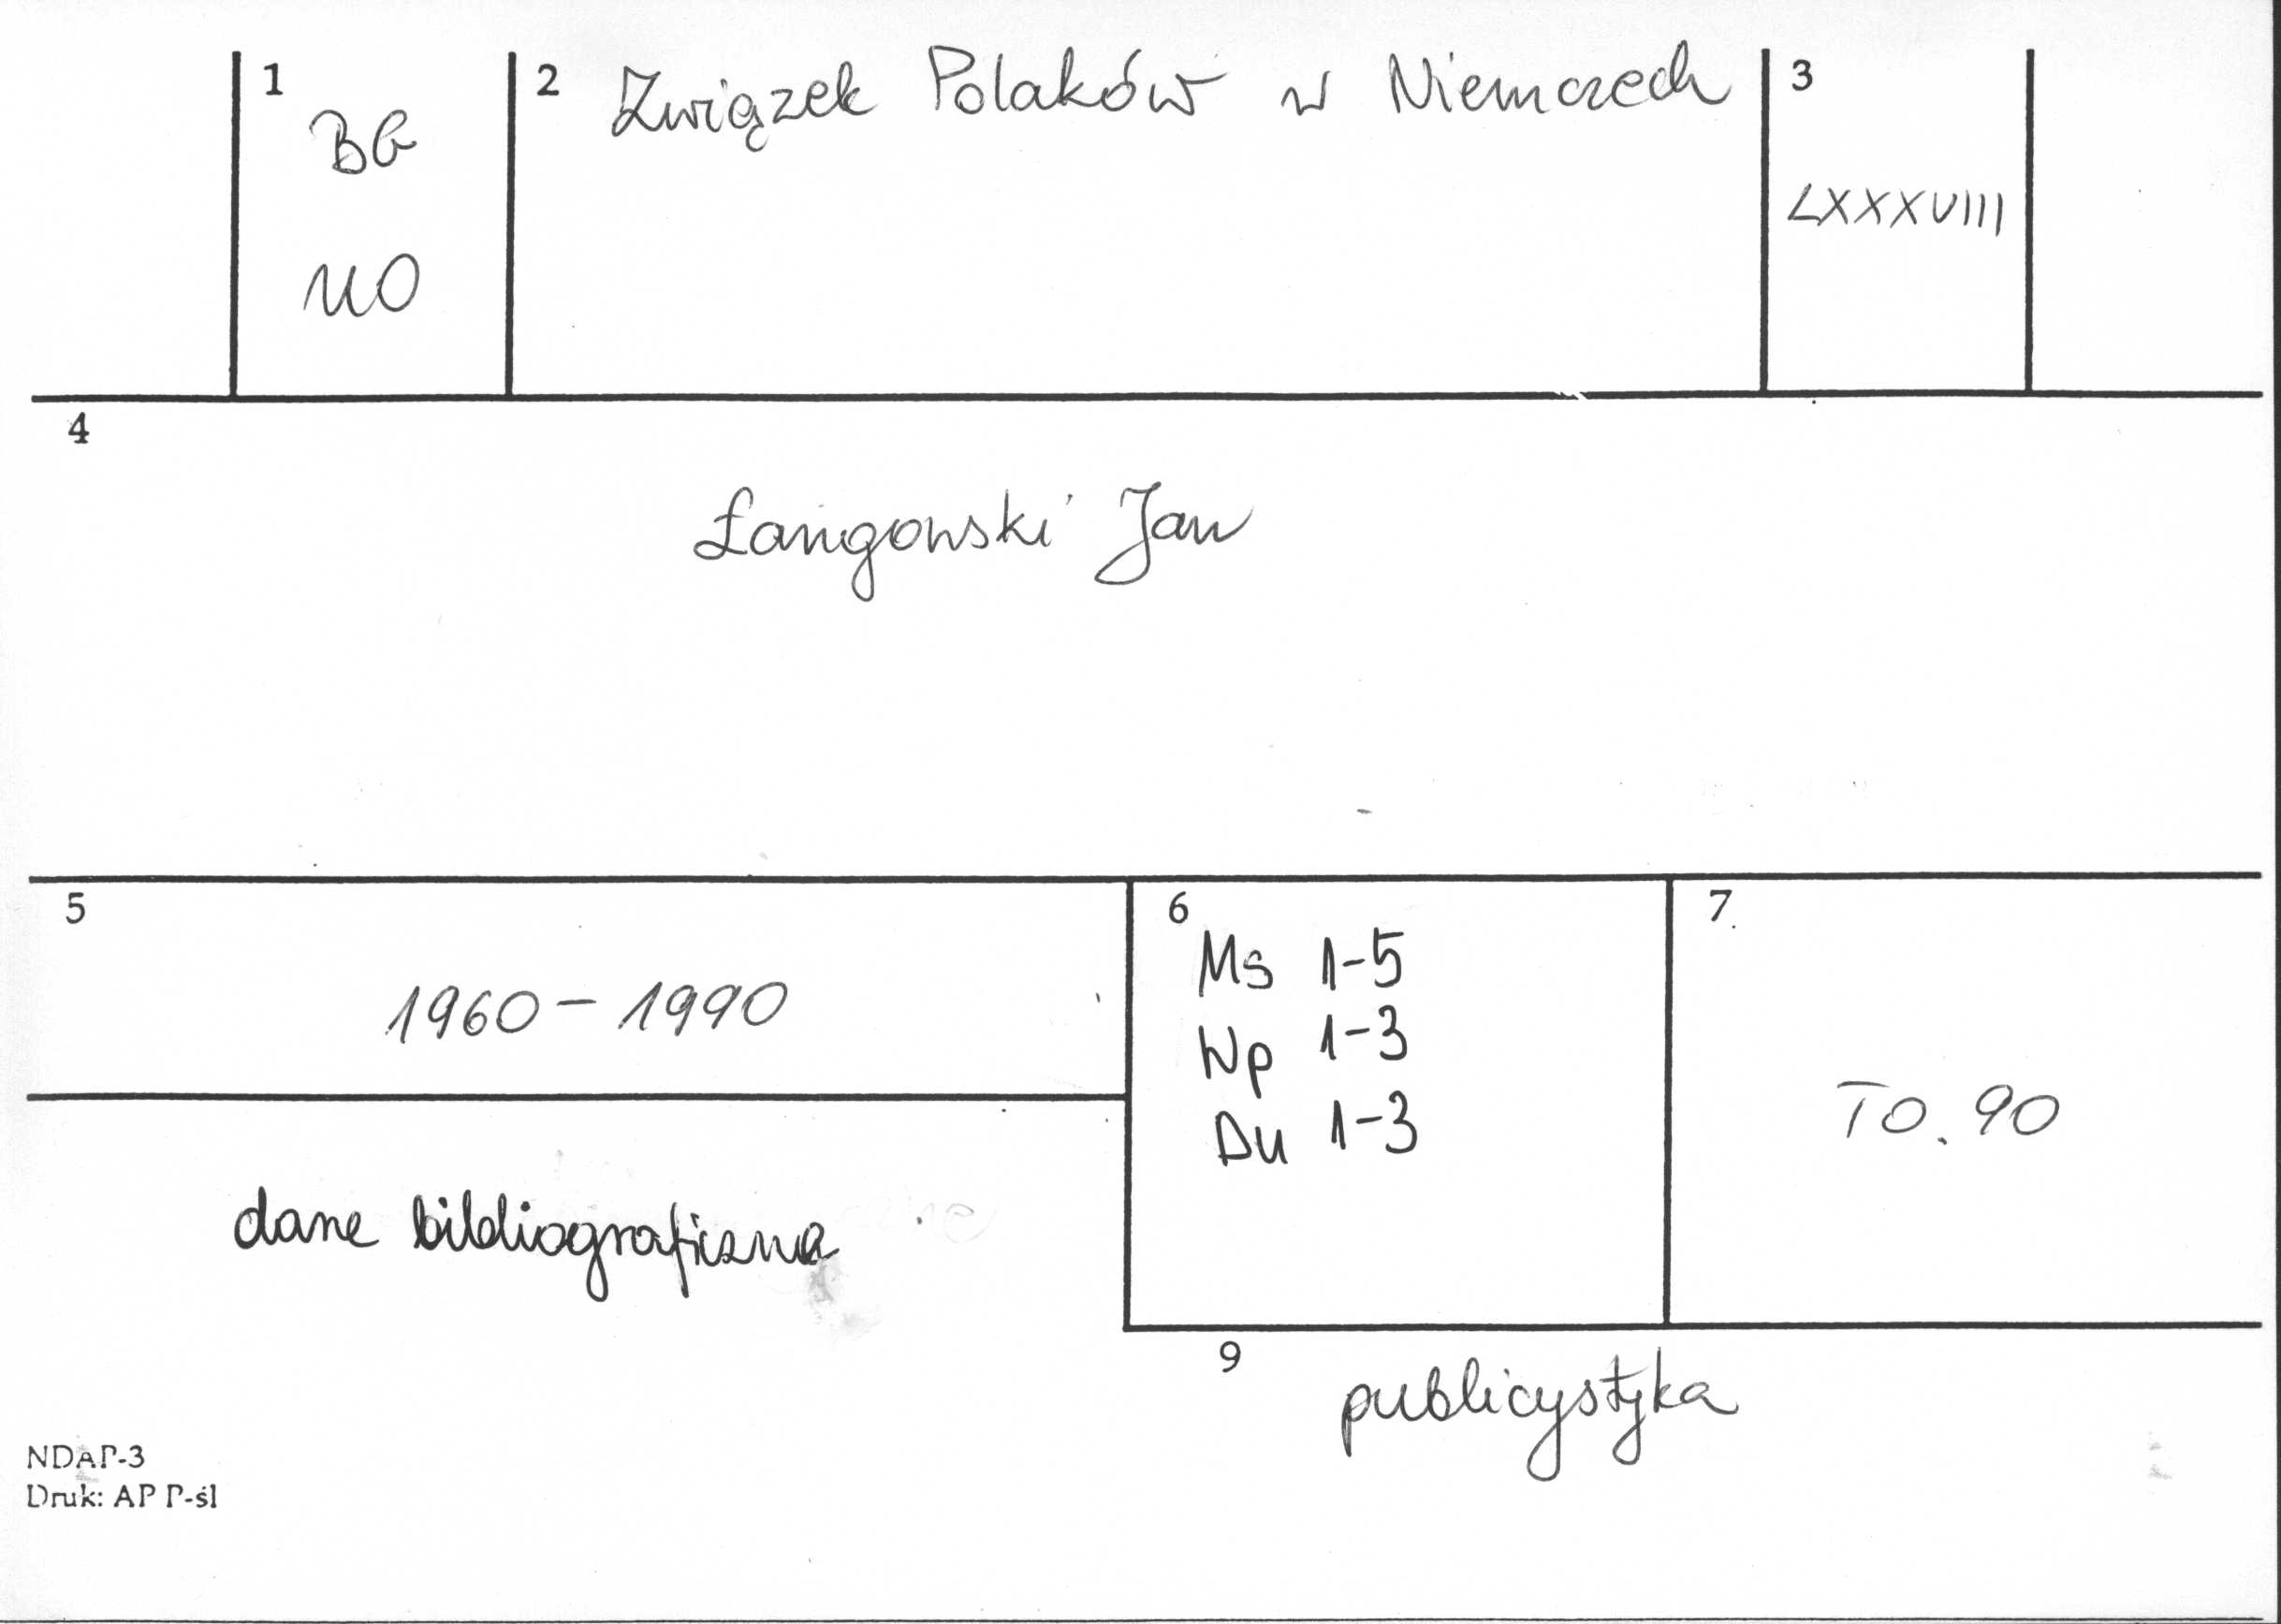 1
BG
UO
2 Związek Polaków w Niemczech
3
LXXXVIII
4
Łangowski Jan
5
1960 - 1990
6
Ms 1-5
Wp 1-3
Du 1-3
7
TO. 90
dane bibliograficzne
9
publicystyka
NDAP-3
Druk: AP P-śl